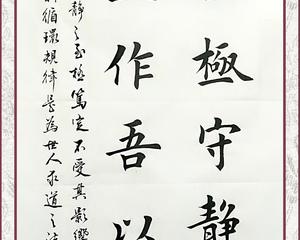 極守靜
作吾以
静之至極篤定不受其影
循環規律是為世人求道之法